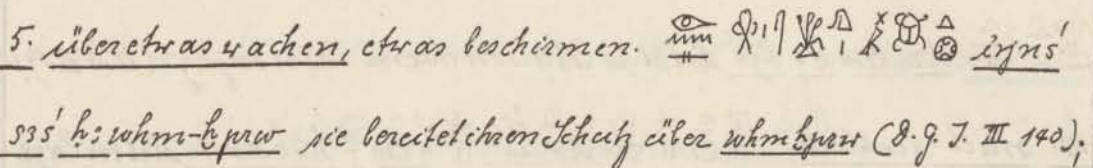 5. über etwas wachen, etwas beschirmen. 𓁹𓈖𓊃 irnś
s3ś ḥ: wḥm-ḫprw sie bereitet ihren Schutz über wḥmḫprw (D. G. I. III 140);